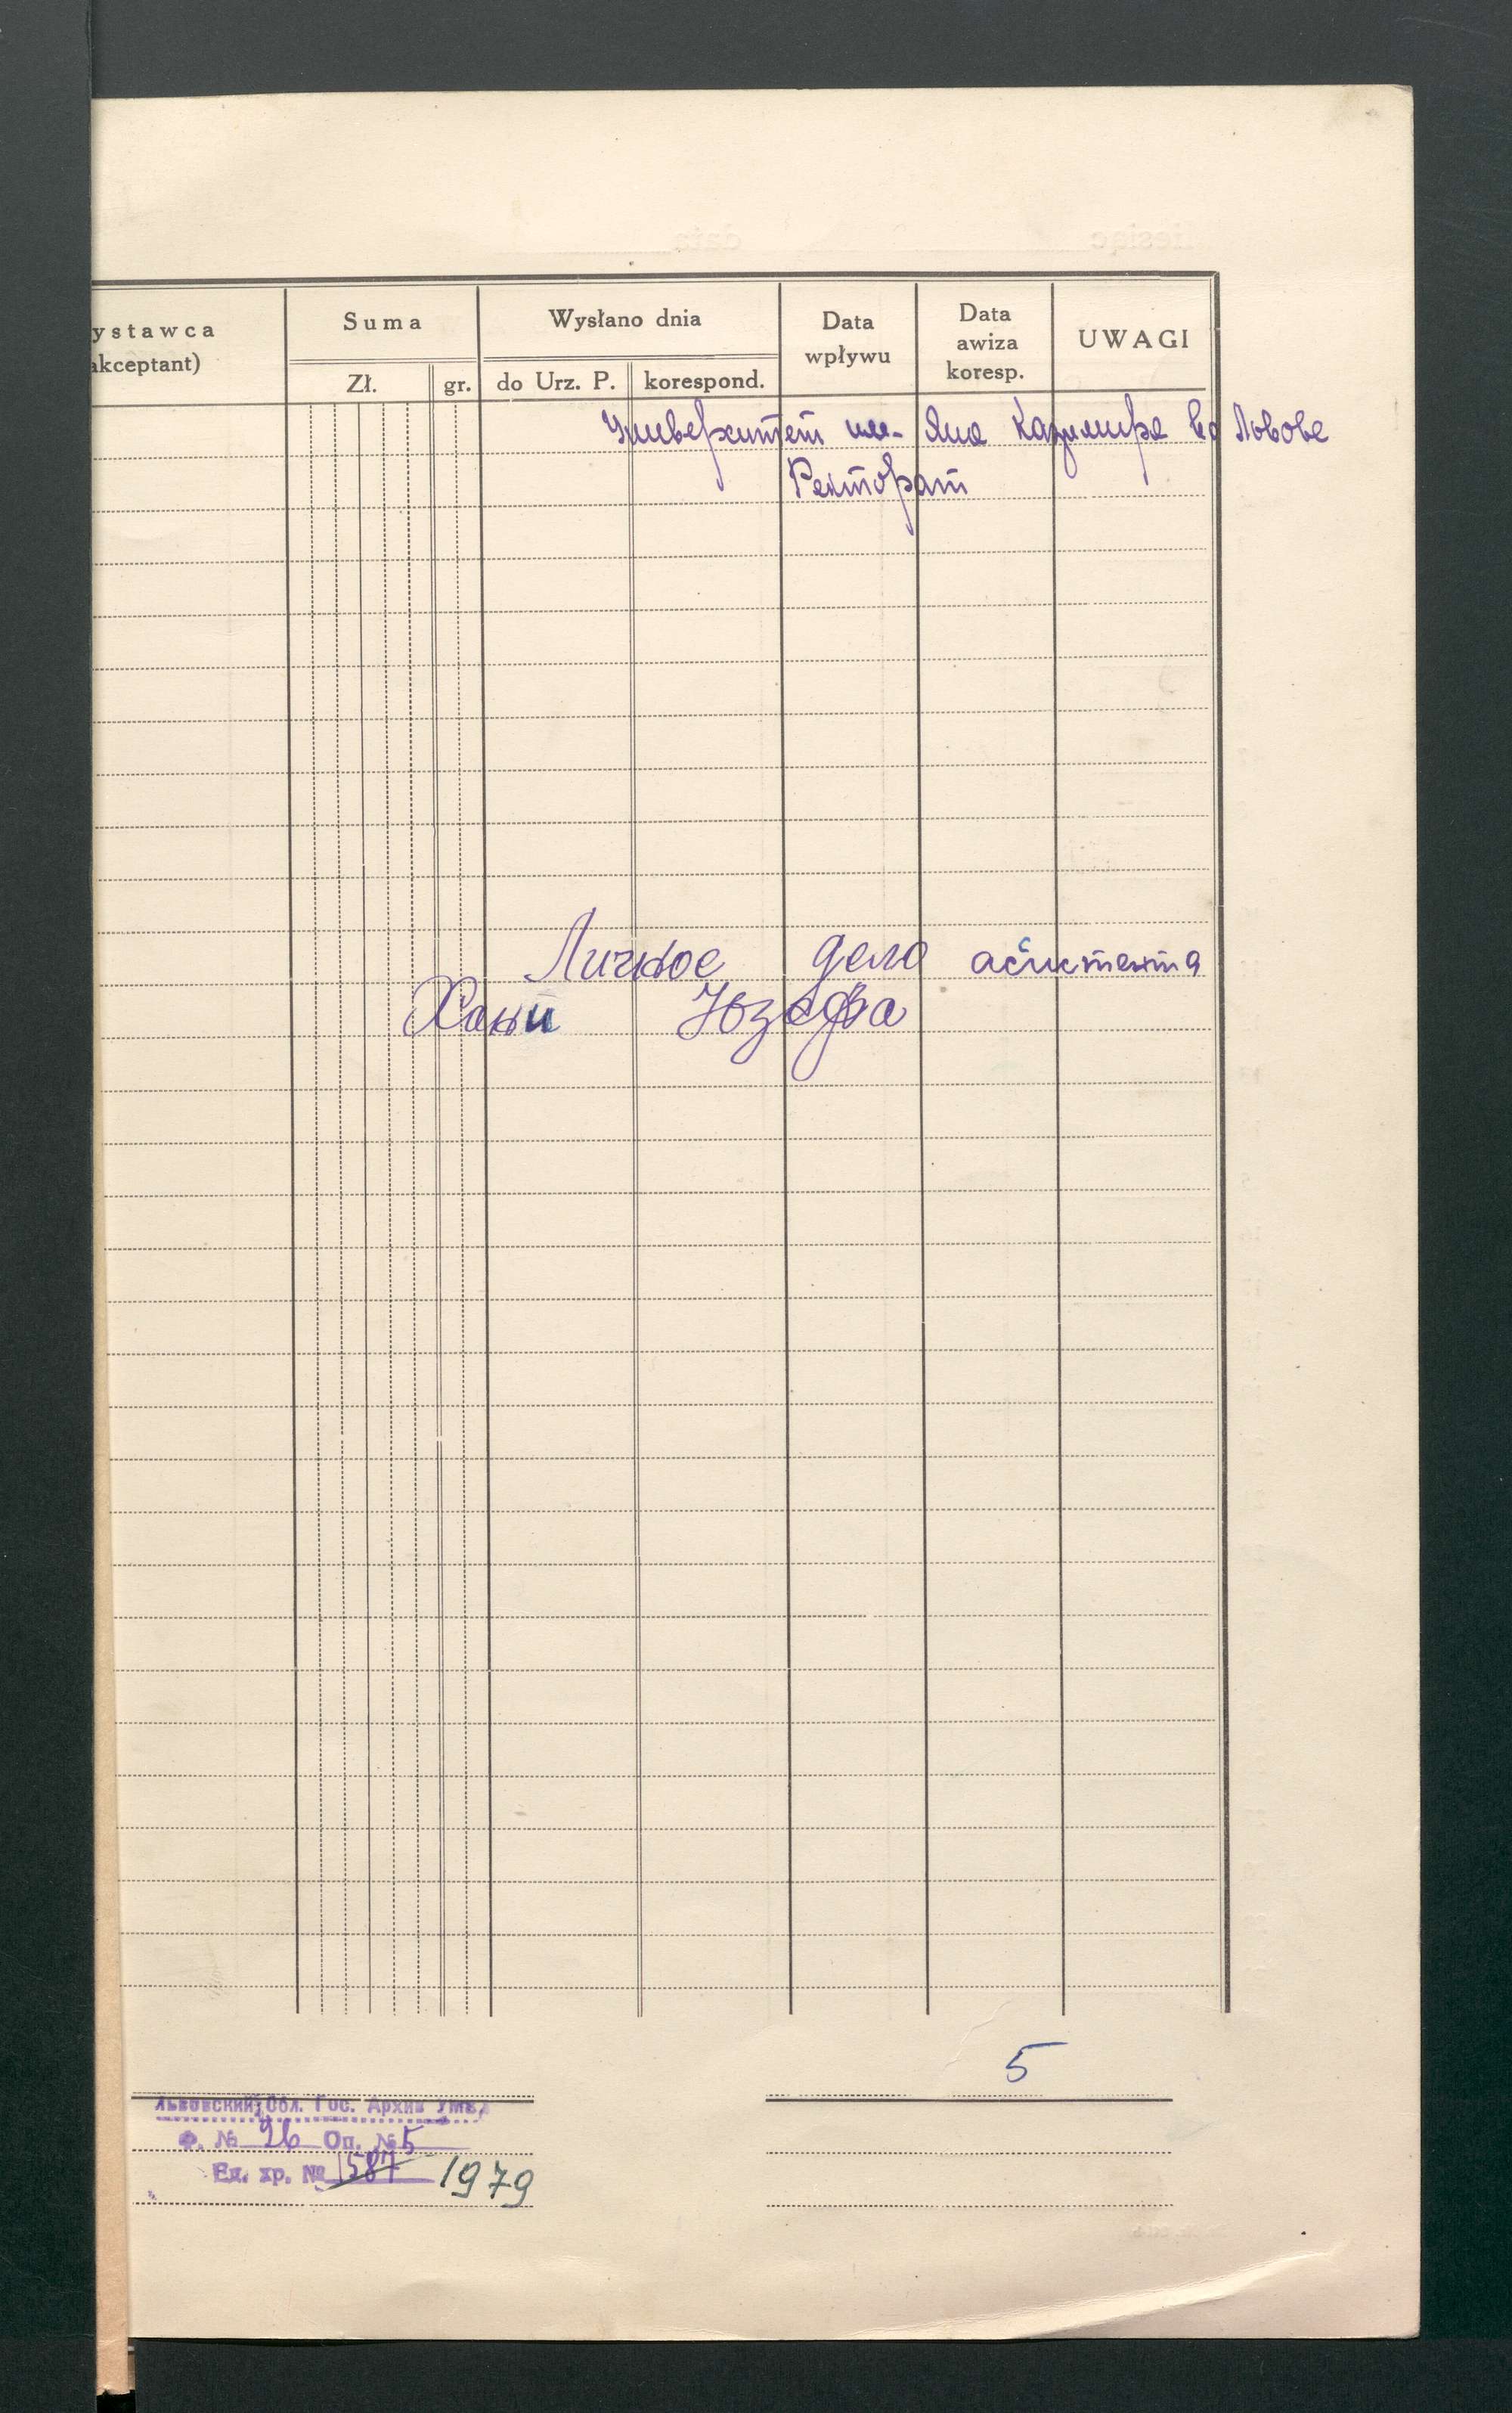 ystawca
akceptant)
Suma
Zł.
gr.
Wysłano dnia
do Urz. P.
korespond.
Data
wpływu
Data
awiza
koresp.
UWAGI
Университет им. Яна Казимира во Львове
Ректорат
Личное дело асистента
Хани Юзефа
5
Львовский Обл. Гос. Архив УМВД
Ф. № 26 Оп. № 5
Ед. хр. № 1587 1979